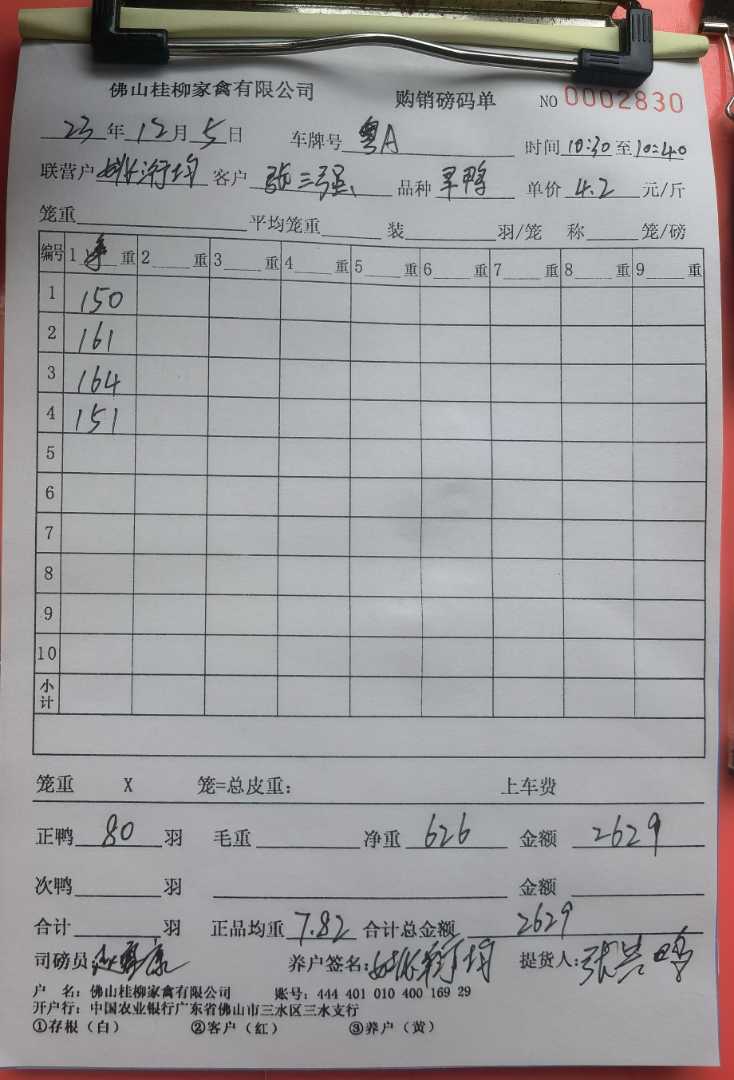 佛山桂柳家禽有限公司 购销磅码单 NO 0002830
23年12月5日 车牌号 粤A 时间 10:30 至 10:40
联营户 客户 张三强 品种 旱鸭 单价 4.2 元/斤
笼重 平均笼重 装 羽/笼 称 笼/磅
编号 1 净 重 2 重 3 重 4 重 5 重 6 重 7 重 8 重 9 重
1 150
2 161
3 164
4 151
5
6
7
8
9
10
小计
笼重 X 笼=总皮重: 上车费
正鸭 80 羽 毛重 净重 626 金额 2629
次鸭 羽 金额
合计 羽 正品均重 7.82 合计总金额 2629
司磅员: 养户签名: 提货人:
户 名:佛山桂柳家禽有限公司 账号:444 401 010 400 169 29
开户行:中国农业银行广东省佛山市三水区三水支行
①存根(白) ②客户(红) ③养户(黄)